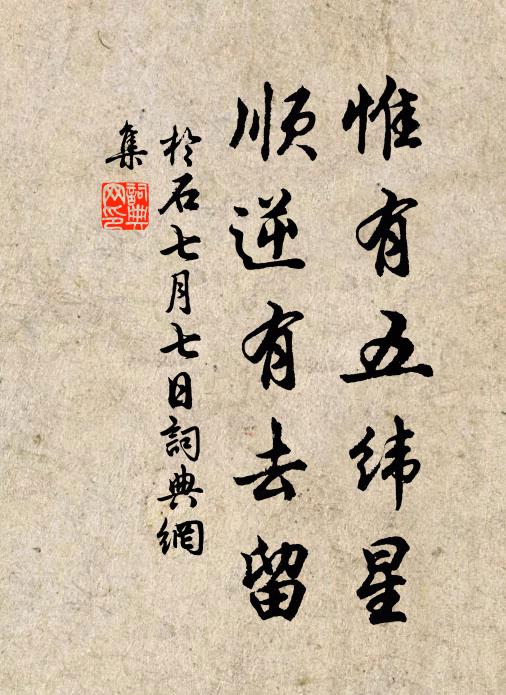 惟有五緯星
順逆有去留
於石七月七日詞典網
集
詞典網印